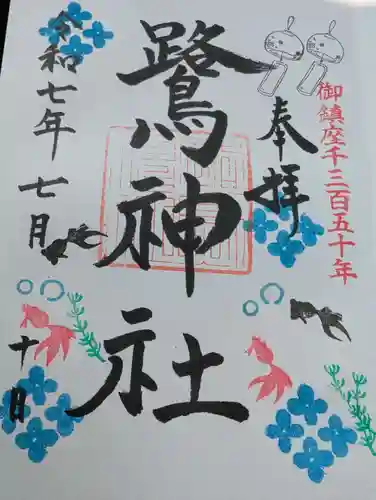 御鎮座千三百五十年
奉拝
鷺神社
令和七年七月十日